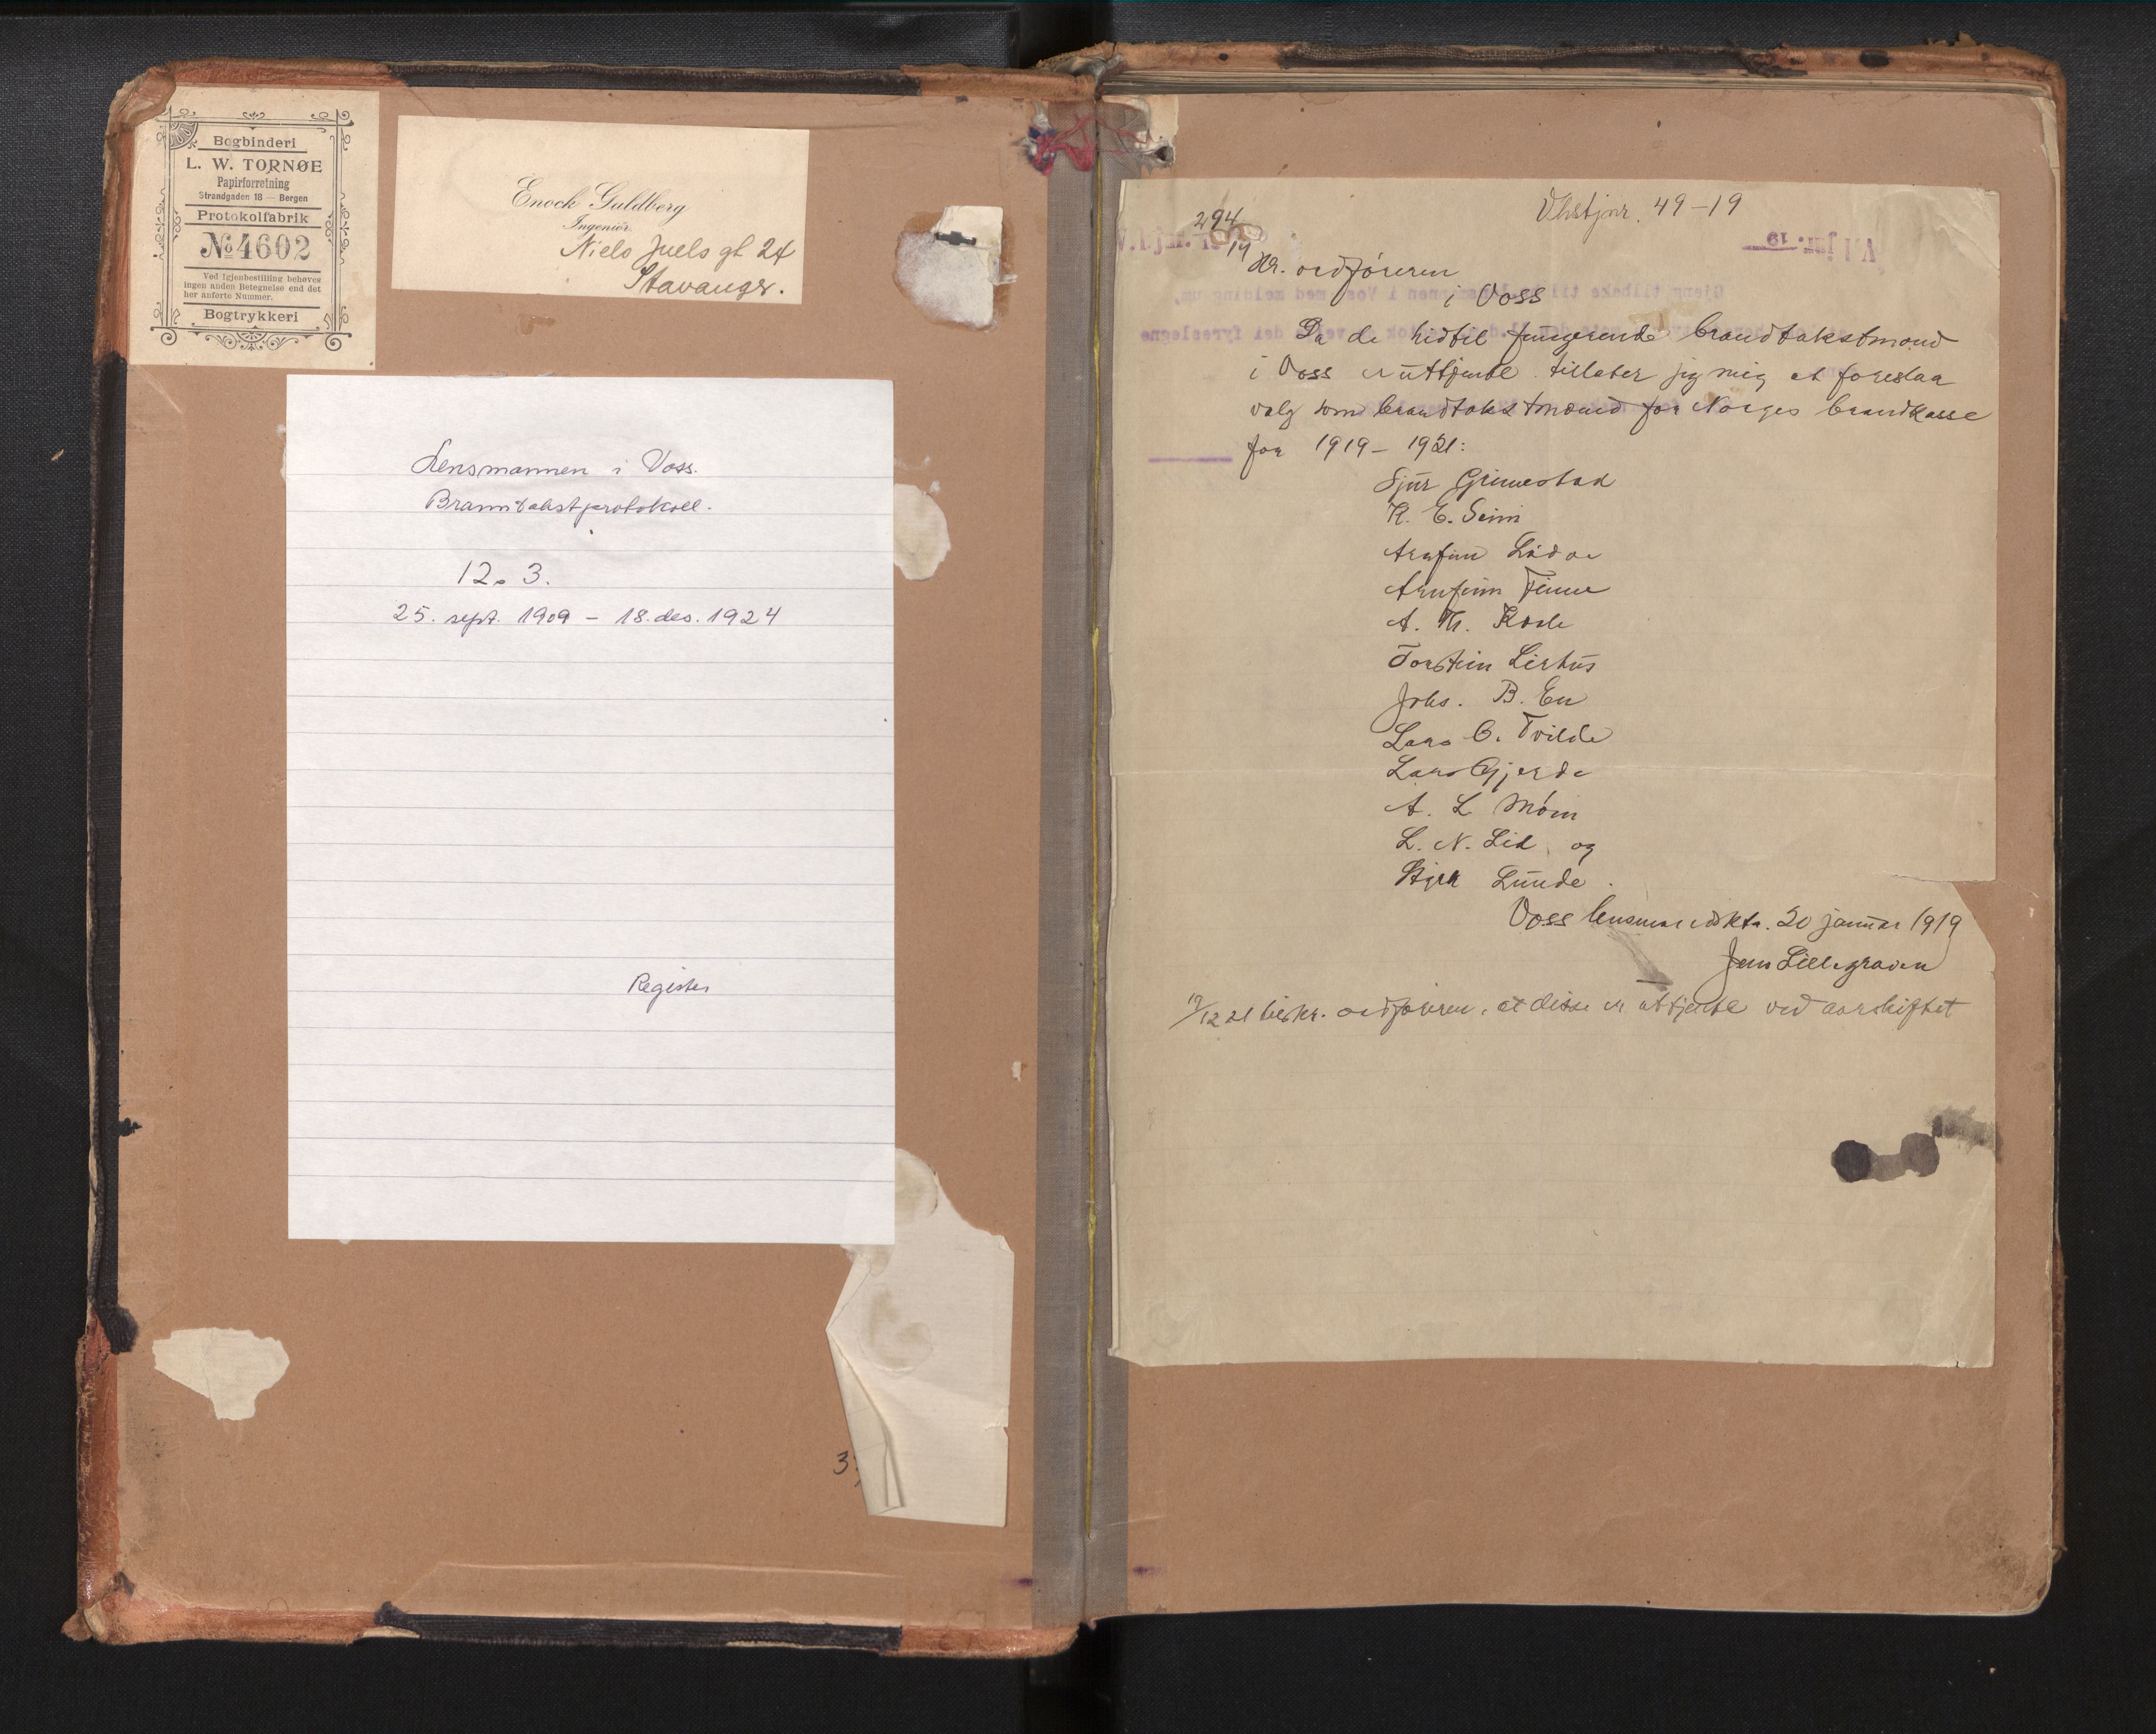 Bogbinderi
L. W. TORNØE
Papirforretning
Strandgaden 18 — Bergen
Protokolfabrik
№ 4602
Ved Igjenbestilling behøves
ingen anden Betegnelse end det
her anførte Nummer.
Bogtrykkeri
Enoch Guldberg
Ingeniør.
Niels Juels gt 24
Stavanger.
Lensmannen i Voss.
Branntakstprotokoll.
12. 3.
25. sept. 1909 – 18. des. 1924
Register
3
Vhstjnr. 49–19
294
19
Hr. ordføreren
i Voss
Da de hidtil fungerende brandtakstmænd
i Voss er uttjent tillater jeg mig at foreslaa
valg som brandtakstmænd for Norges brandkasse
for 1919 – 1921:
Sjur Grimestad
K. E. Seim
Arnfinn Lid
Arnfinn Finne
A. K.
Torstein Lirhus
Johs. B. En
Lars O. Tvilde
Lars Gjerde
A. L. Møen
L. N. Lid og
Styrk Lunde.
Voss lensmandsktr. 20 januar 1919
Jens Lillegraven
12 21 ordføreren, at disse er uttjent ved aarskiftet